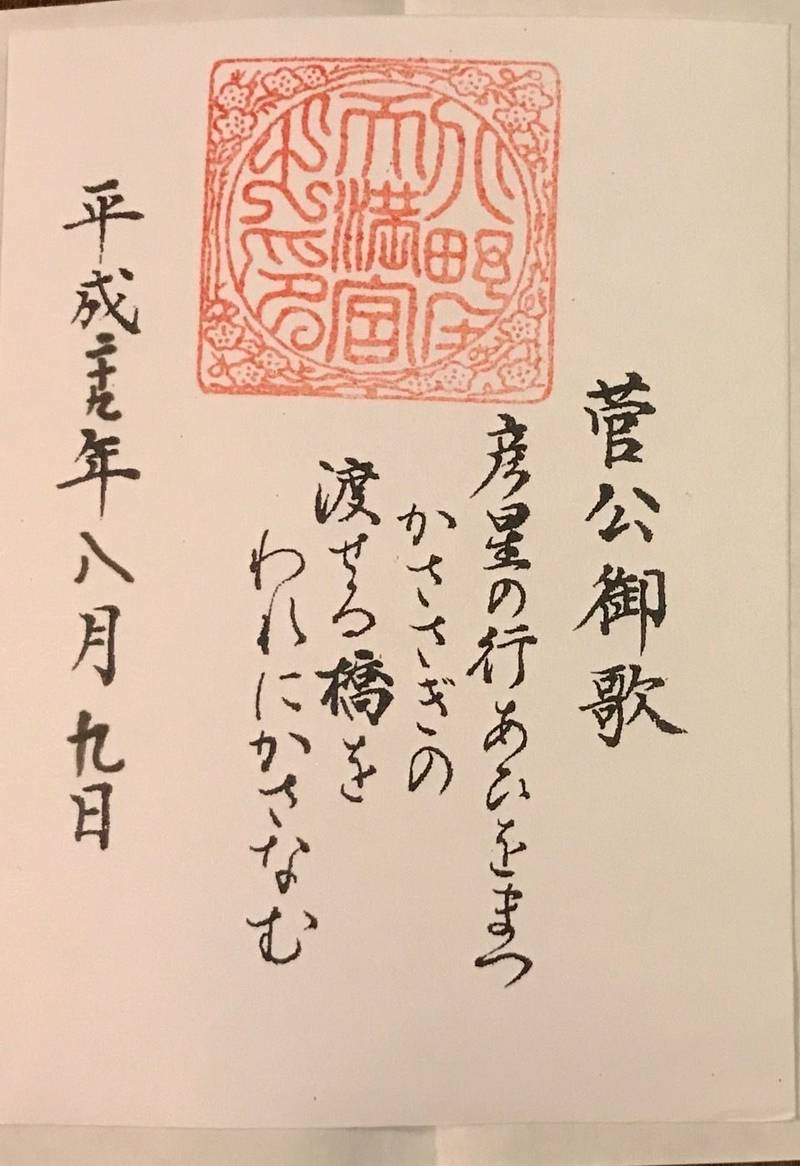 天満宮
菅公御歌
彦星の行あひをまつ
かささぎの
渡せる橋を
われにかさなむ
平成二十九年八月九日